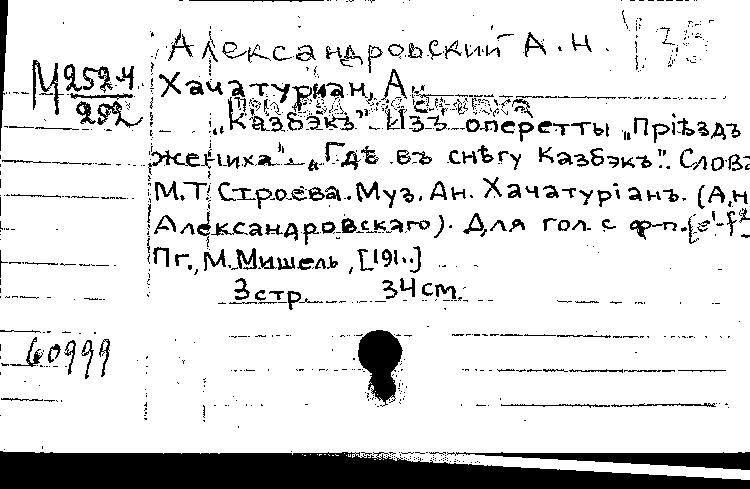 Александровский А.Н. 135
М 252-4
292
Хачатуриан, А.
„Казбэкъ". Изъ оперетты „Пріѣздъ
жениха". „Гдѣ въ снѣгу Казбэкъ". Слова
М.Т. Строева. Муз. Ан. Хачатуріанъ. (А.Н.
Александровскаго). Для гол с ф-п.
Пг., М. Мишель, [191..]
3 стр. 34 см.
60999